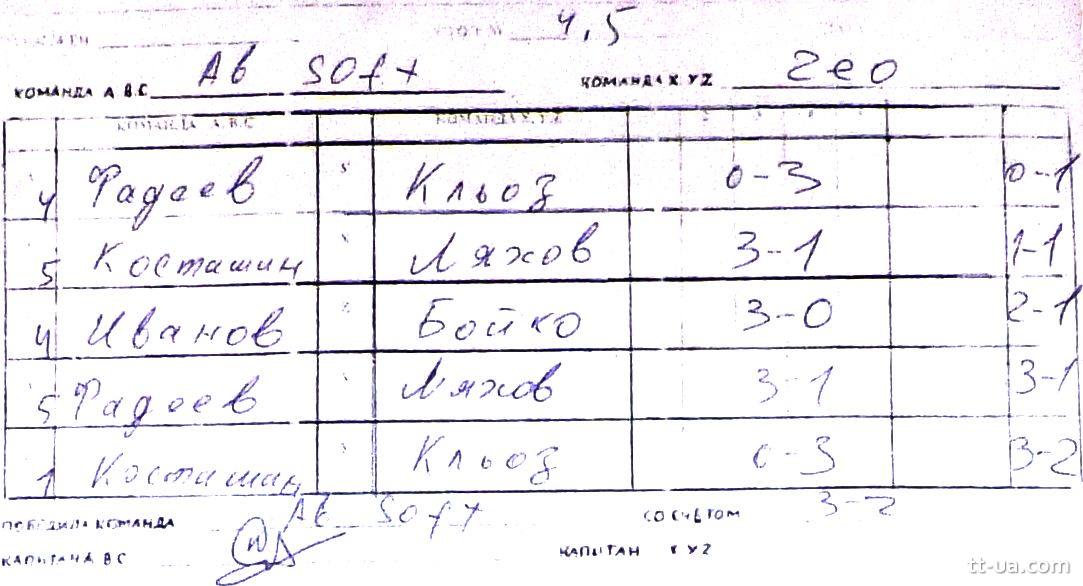 4,5
КОМАНДА А.В.С. Ab soft КОМАНДА X.Y.Z Zeo
КОМАНДА А.В.С КОМАНДА X.Y.Z
4 Фадеев Кльоз 0-3 0-1
5 Косташин Ляхов 3-1 1-1
4 Иванов Бойко 3-0 2-1
5 Фадеев Ляхов 3-1 3-1
1 Косташин Кльоз 0-3 3-2
ПОБЕДИЛА КОМАНДА Ab Soft СО СЧЁТОМ 3-2
КАПИТАН А В С КАПИТАН X Y Z
tt-ua.com